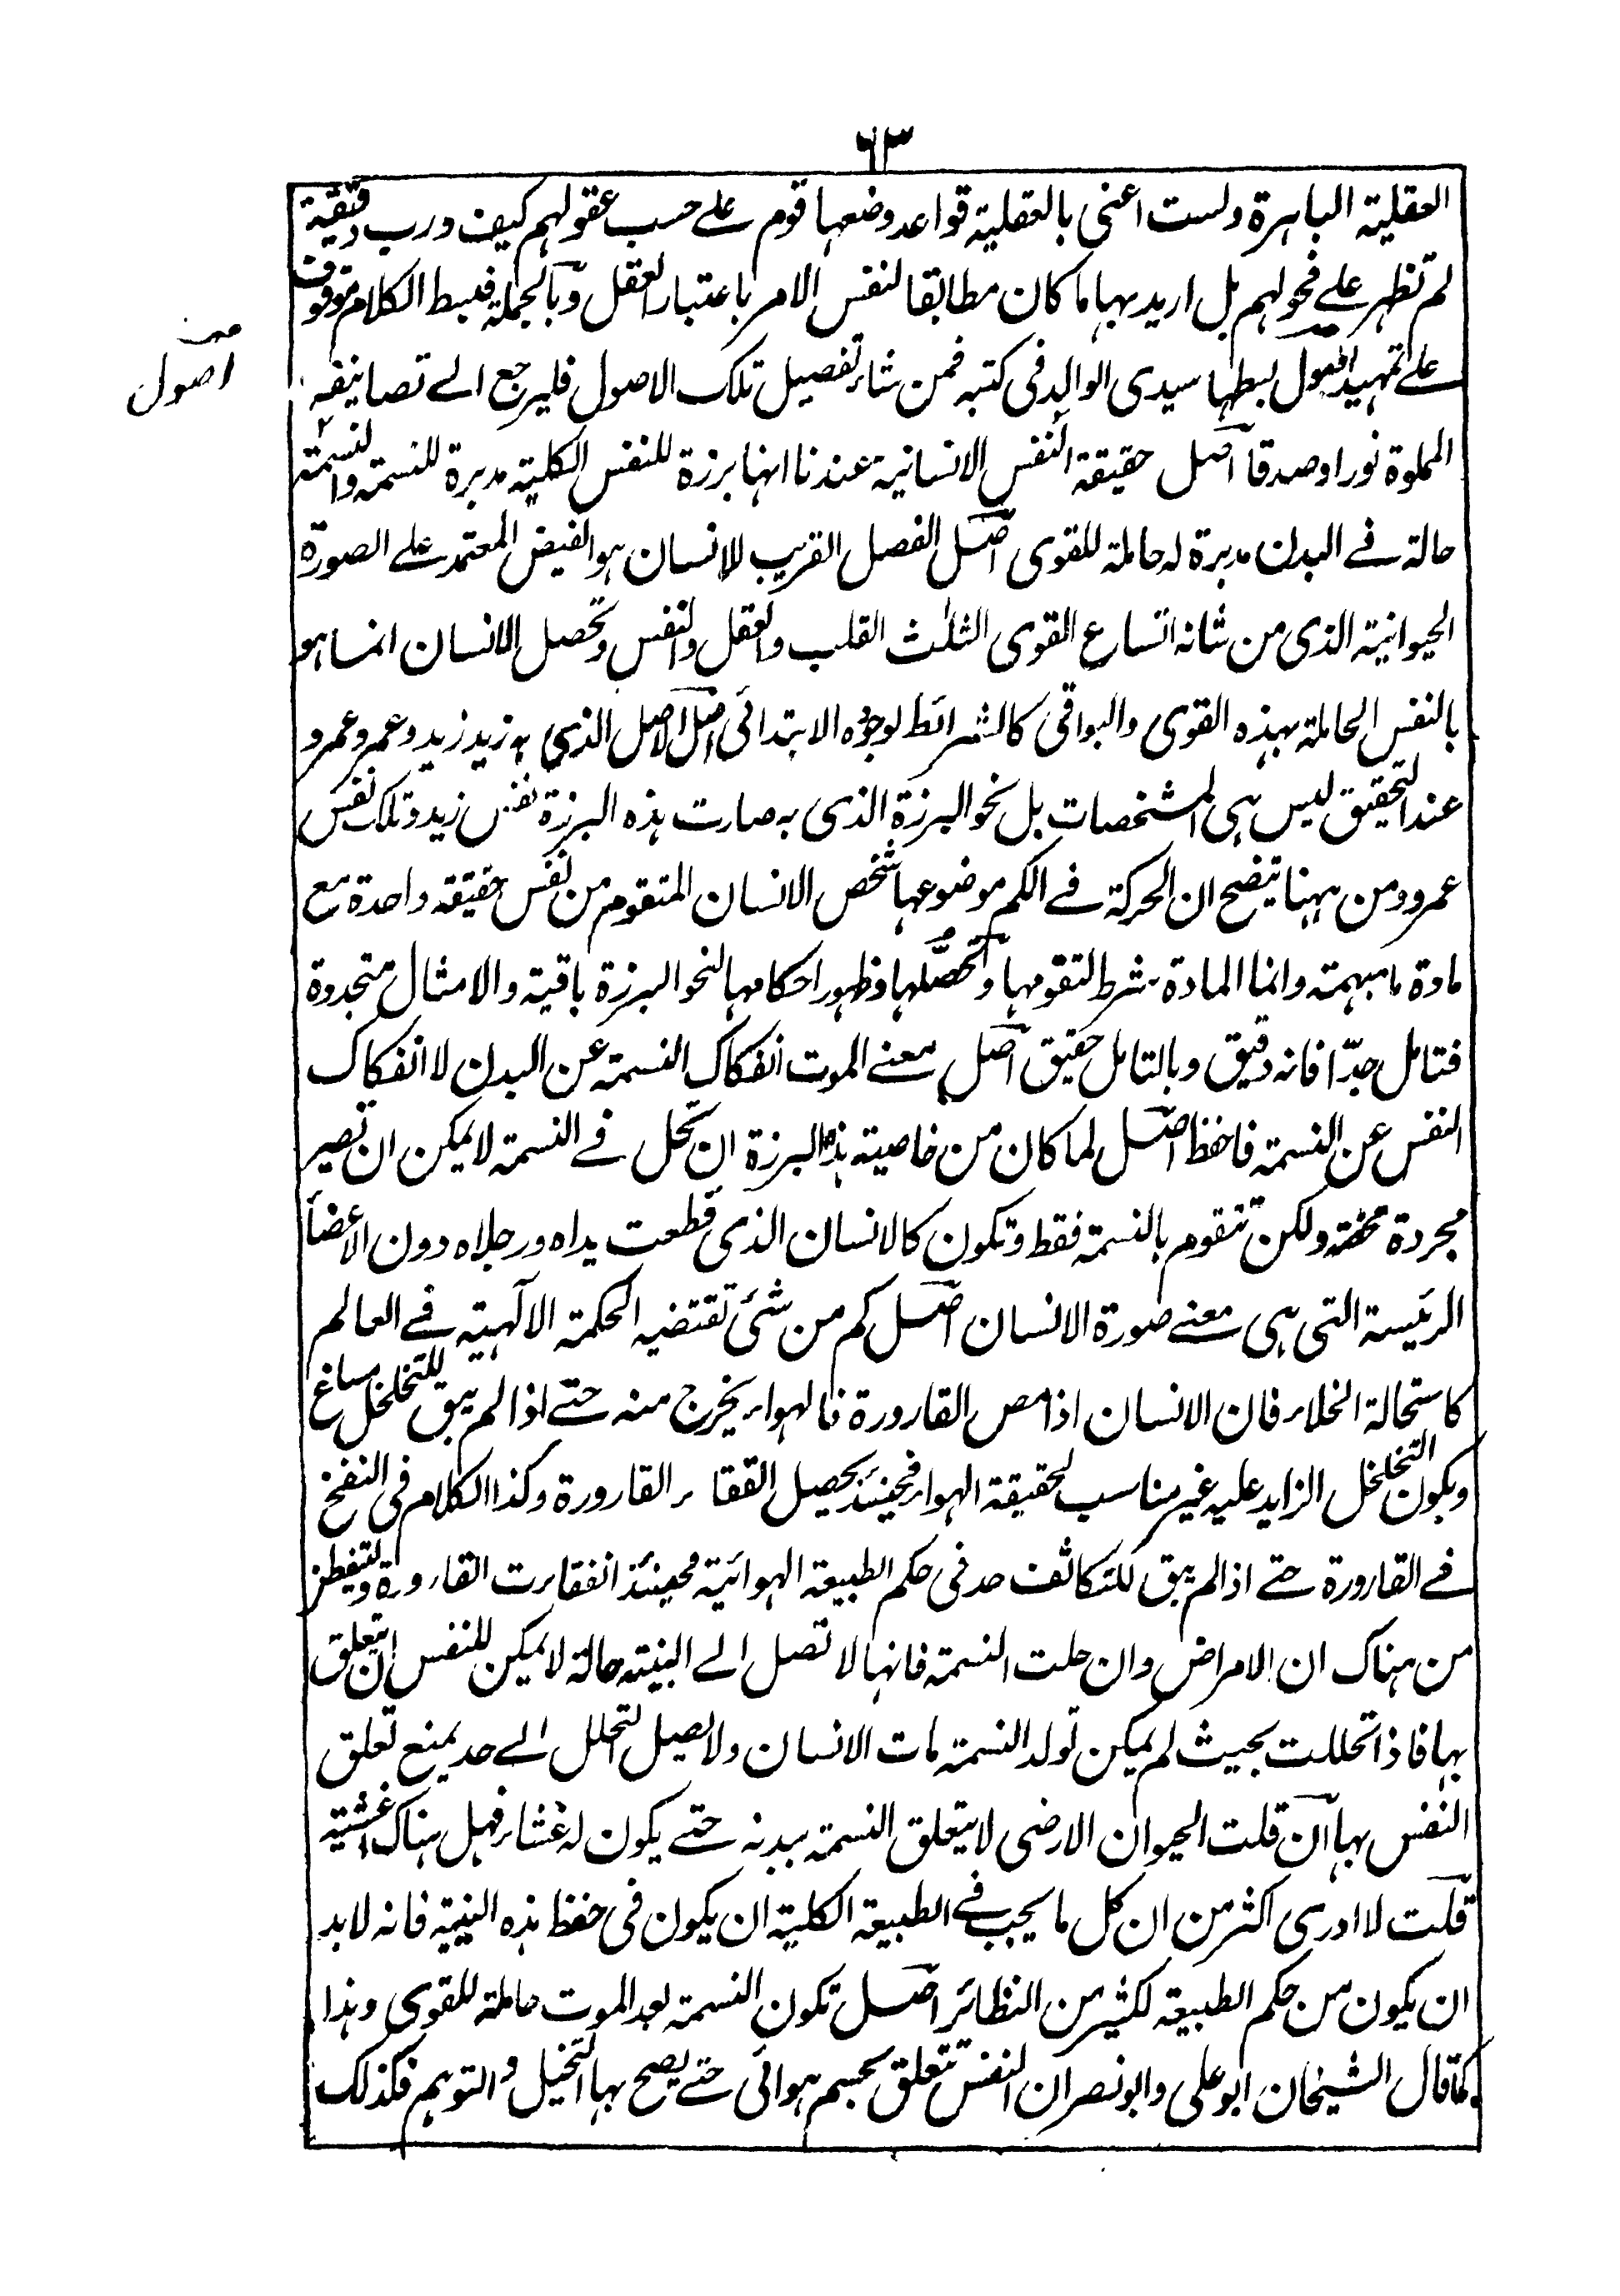 ٦٣
العقلية الباهرة ولست اعنى بالعقلية قواعد وضعها قوم على حسب عقولهم كيف ورب دقيقة
لم تظهر على فحولهم بل اريد بها ما كان مطابقا لنفس الامر باعتبار العقل وبالجملة فبسط الكلام موقوف
على تمهيد اصول بسطها سيدى الوالد فى كتبه فمن شاء تفصيل تلك الاصول فليرجع الى تصانيفه
من
اصول
المملوة نورا وصدقا اصل حقيقة النفس الانسانية عندنا انها برزة للنفس الكلية مدبرة للنسمة والنسمة
حالة فى البدن مدبرة له حاملة للقوى اصل الفصل القريب للانسان هو الفيض المعتمد على الصورة
الحيوانية الذى من شانه اتساع القوى الثلث القلب والعقل والنفس وتحصل الانسان انما هو
بالنفس الحاملة بهذه القوى والبواقى كالشرائط لوجوده الابتدائى اصل الاصل الذى به زيد زيد وعمرو عمرو
عند التحقيق ليس هى المشخصات بل نحو البرزة الذى به صارت هذه البرزة نفس زيد وتلك نفس
عمرو ومن ههنا يتضح ان الحركة فى الكم موضوعها شخص الانسان المتقوم من نفس حقيقة واحدة مع
مادة ما مبهمة وانما المادة شرط لتقومها وتحصّلها وظهور احكامها النحو البرزة باقية والامثال متجددة
فتامل جدّا فانه دقيق وبالتامل حقيق اصل معنى الموت انفكاك النسمة عن البدن لا انفكاك
النفس عن النسمة فاحفظ اصل لما كان من خاصية هذه البرزة ان تحل فى النسمة لا يمكن ان تصير
مجردة محضة ولكن تتقوم بالنسمة فقط وتكون كالانسان الذى قطعت يداه ورجلاه دون الاعضاء
الرئيسة التى هى معنى صورة الانسان اصل كم من شئ تقتضيه الحكمة الالٓهية فى العالم
كاستحالة الخلاء فان الانسان اذا مص القارورة فالهواء يخرج منه حتى اذا لم يبق للتخلخل مساغ
ويكون التخلخل الزايد عليه غير مناسب لحقيقة الهواء فحينئذ يحصل انفقاء القارورة وكذا الكلام فى النفخ
فى القارورة حتى اذا لم يبق للتكاثف حد فى حكم الطبيعة الهوائية فحينئذ انفقاءت القارورة وليتفطن
من هناك ان الامراض وان حلت النسمة فانها لا تصل الى البنية حالة لا يمكن للنفس ان يتعلق
بها فاذا تحللت بحيث لم يمكن تولد النسمة مات الانسان ولا يصل التحلل الى حد يمنع تعلق
النفس بها ان قلت الحيوان الارضى لا يتعلق النسمة ببدنه حتى يكون له غشاء فهل هناك اغشية
قلت لا ادرى اكثر من ان كل ما يجب فى الطبيعة الكلية ان يكون فى حفظ هذه البنية فانه لا بد
ان يكون من حكم الطبيعة لكثير من النظائر اصل تكون النسمة بعد الموت حاملة للقوى وهذا
كما قال الشيخان ابو على وابو نصر ان النفس تتعلق بجسم هوائى حتى يصح بها التخيل والتوهم فكذلك